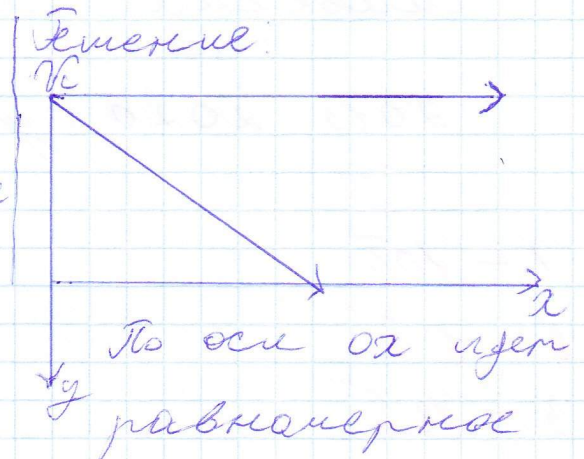 Решение:
x
По оси ох идет
y
равномерное